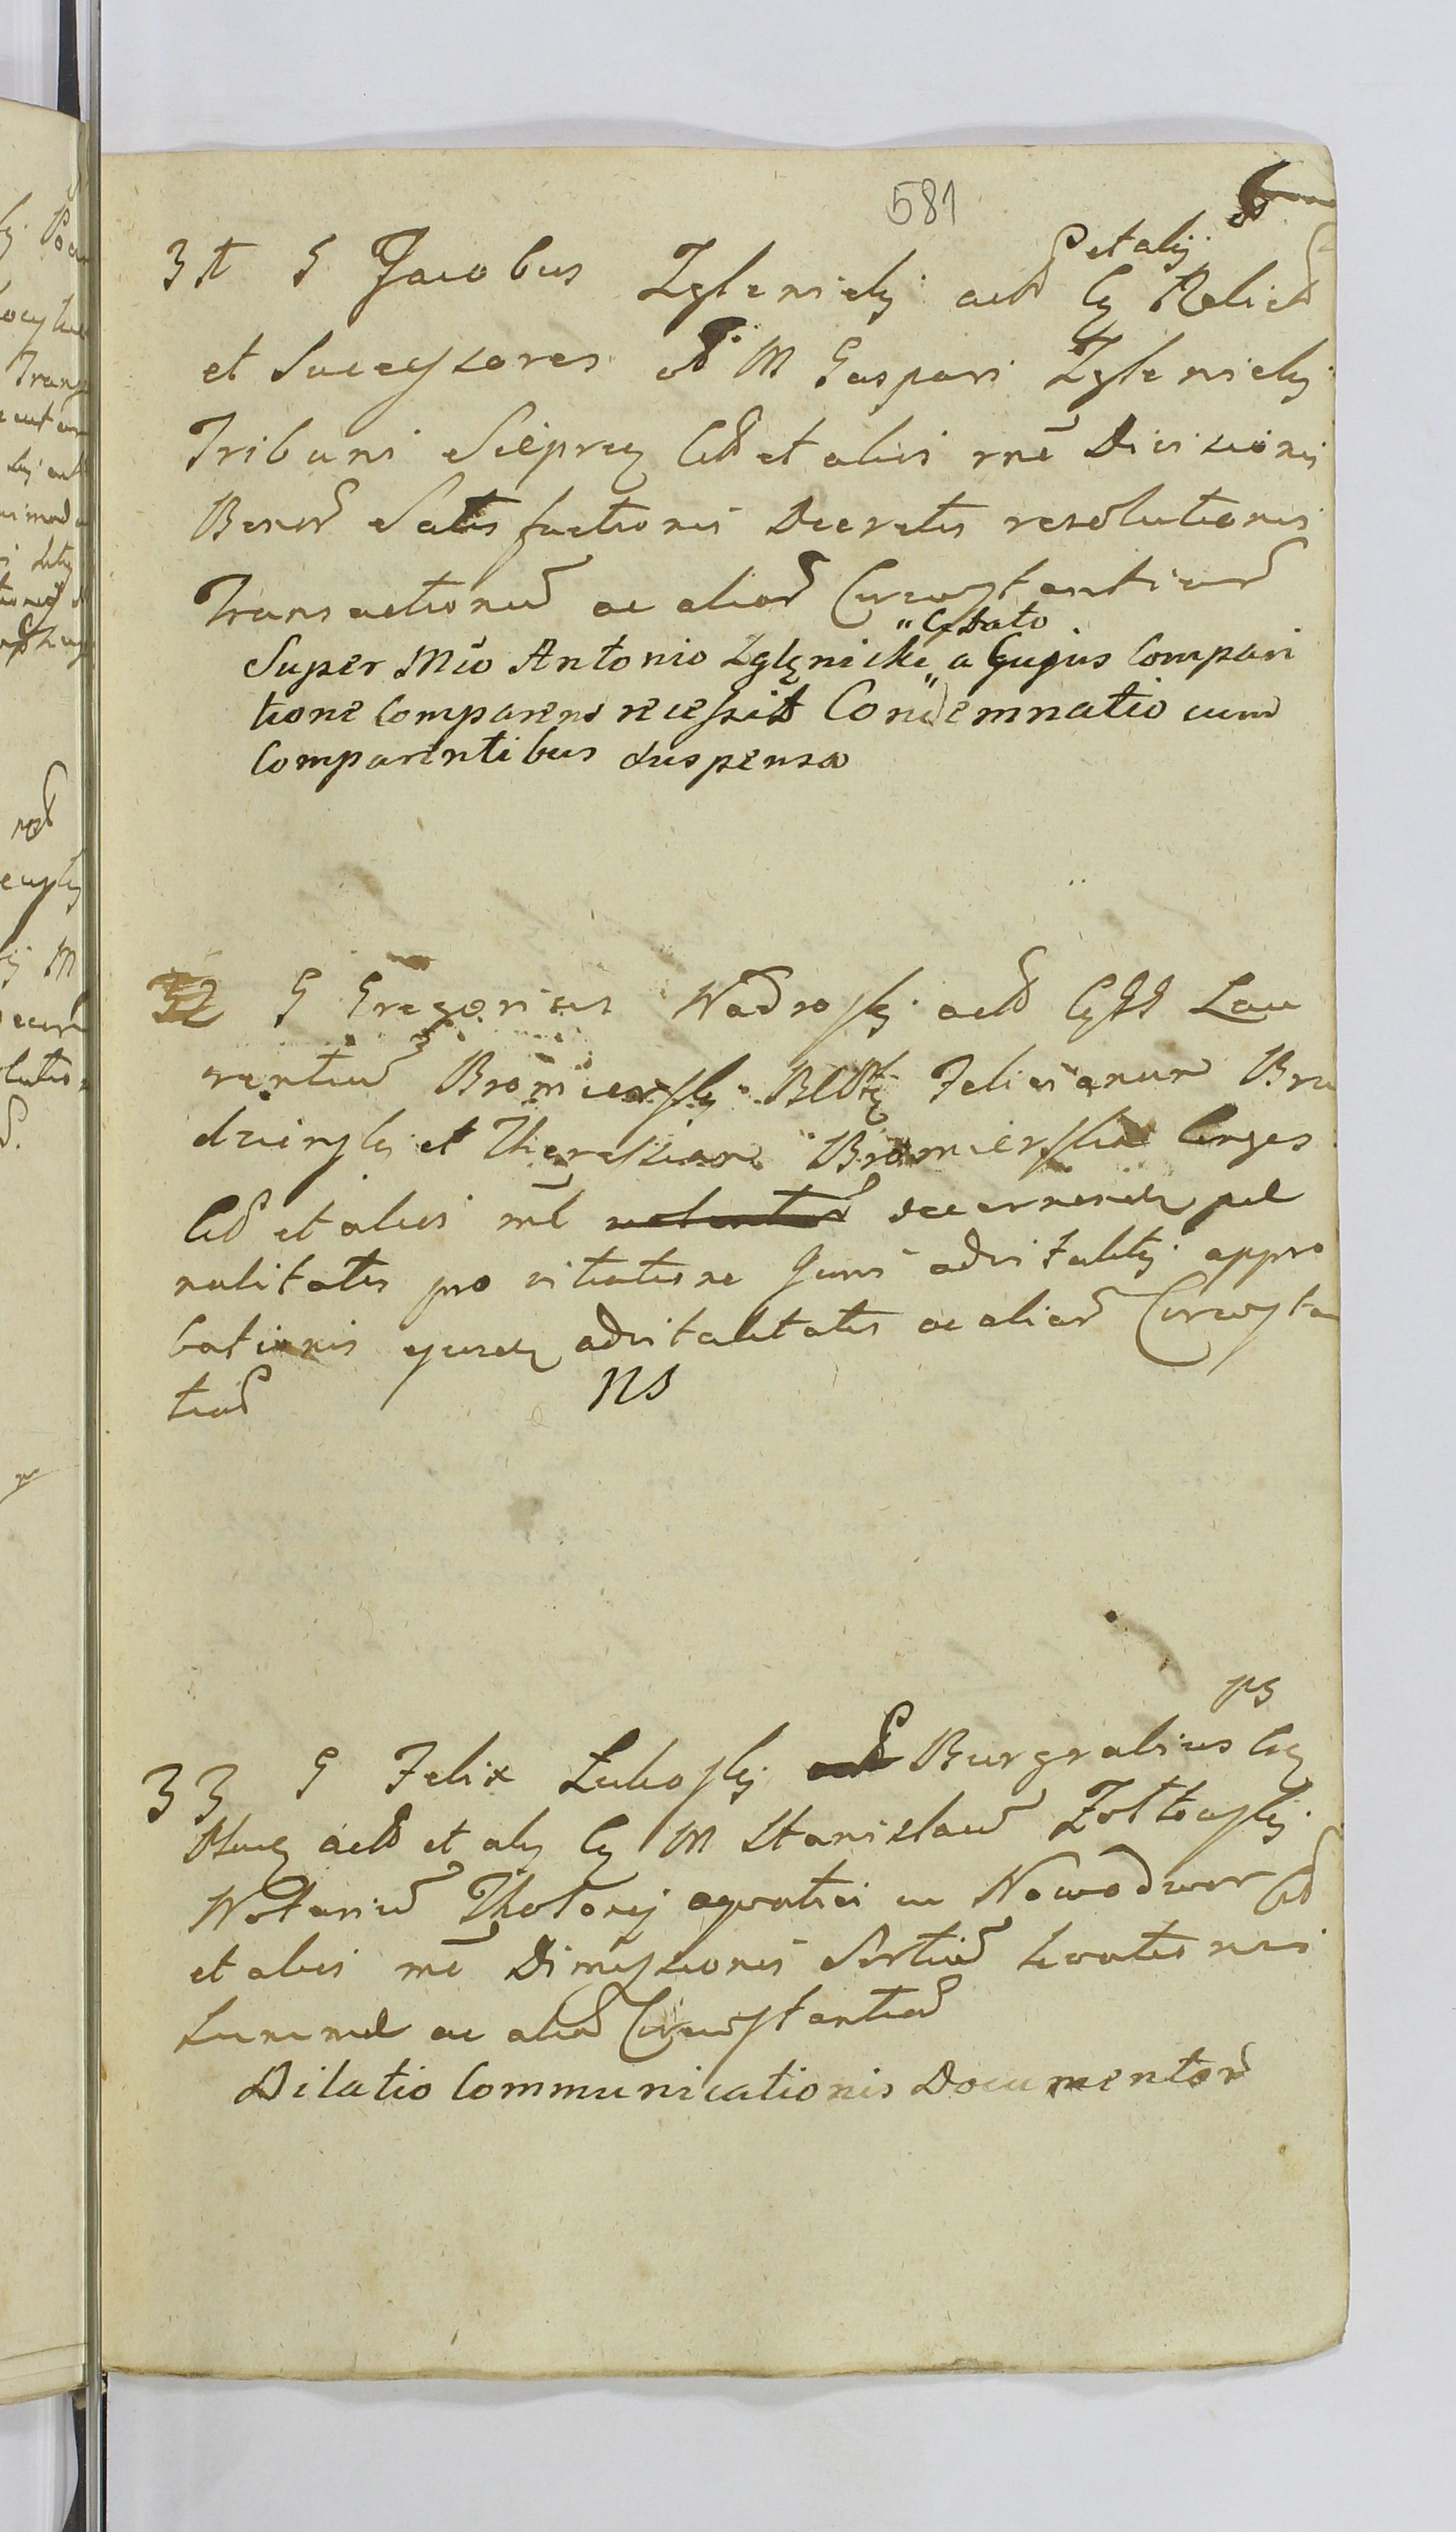 581
et alij
31 G Jacobus Zglenicky act Cq Relict
et Successores M Gaspari Zglenicky
Tribuni Sieprcq Cit et aliis rne Divisionis
Bonor Satisfactionis Decretis resolutionis
Transactionu ac aliar Circustantiar
"Citato
Super Mco Antonio Zglęnicki" a Cujus Compari
tione Comparens recessit Condemnatio cum
Comparentibus suspensa
32 G Gregorius Nadrosky act Cq GG Lau
rentiu Bromiersky Felicianum Bru
dzinsky et Theressiam Bromierska Conges
Cit et aliis rne decernendq poe
nalitatis pro vitiatione Juris advitalitij appro
bationis ejusdq advitalitatis ac aliar Circusta
tiar NS
ps
33 G Felix Łukosky Burgrabius Cq
Plocq act et aly Cq M Stanislau Zołtowsky
Notariu in Nowodwor Cit
et aliis rne Dimissionis Sortiu levationis
Summe ac aliar Circustantiar
Dilatio Communicationis Documentor